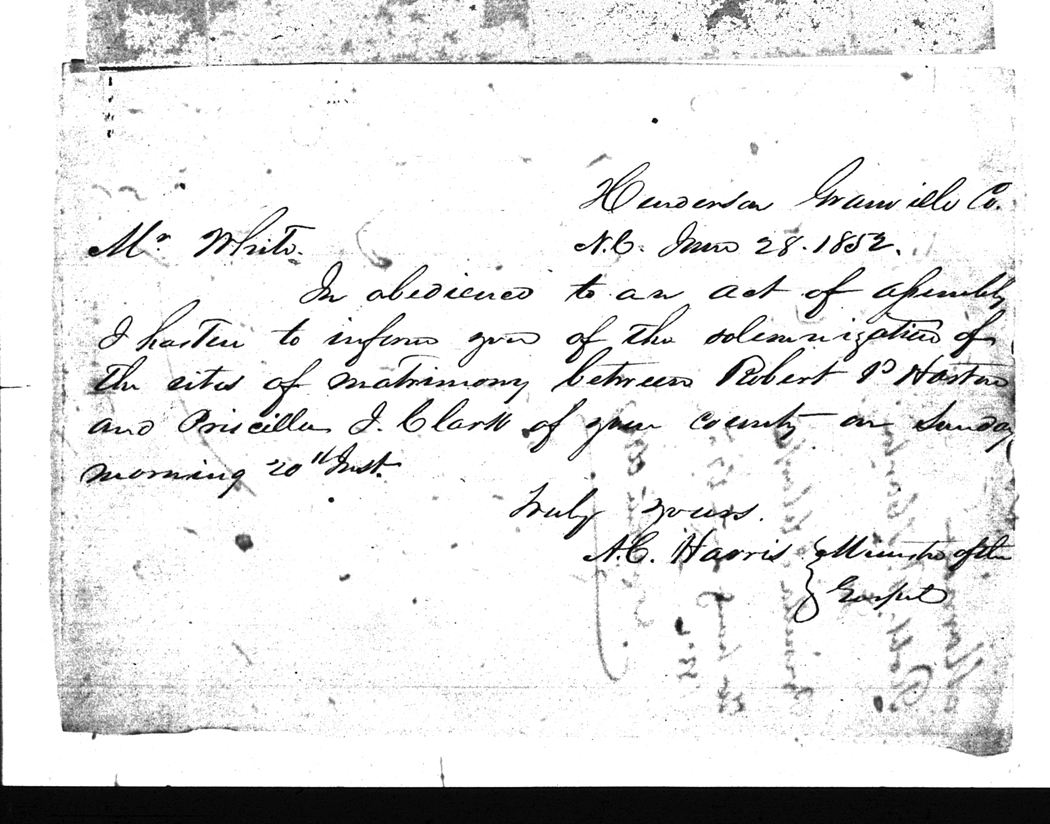 Henderson Granville Co.
Mr White. N.C. June 28. 1852.
In obedience to an act of assembly
I hasten to inform you of the solemnization of
the rites of matrimony between Robert P Hasten
and Priscilla J. Clark of your county on Sunday
morning 20th Inst.
Truly yours.
A.C. Harris Minister of the
Gospel